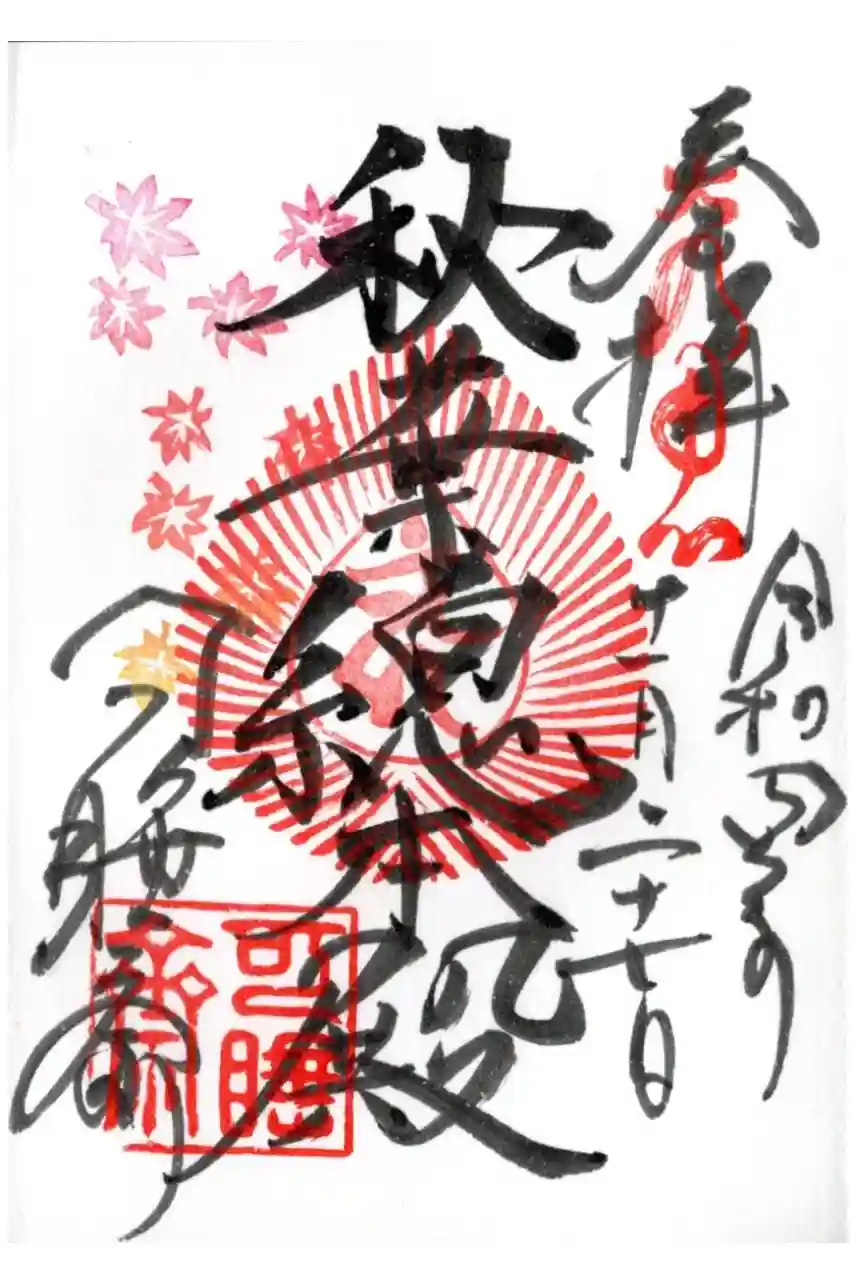 奉拝
令和四年
十一月二十七日
秋葉総本殿
可睡齋
可睡齋